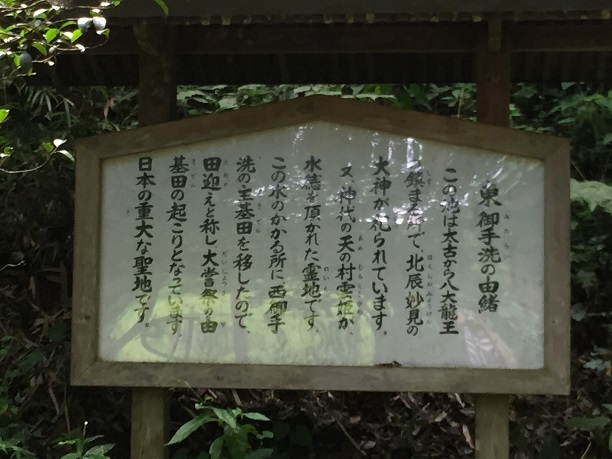 東御手洗の由緒
この池は太古から八大龍王
の鎮まる所で、北辰妙見の
大神が祀られています。
又、神代の天の村雲姫が、
水徳を頂かれた霊地です
この水のかかる所に西御手
洗の主基田を移したので、
田迎えと称し、大嘗祭の由
基田の起こりとなっています。
日本の重大な聖地です。